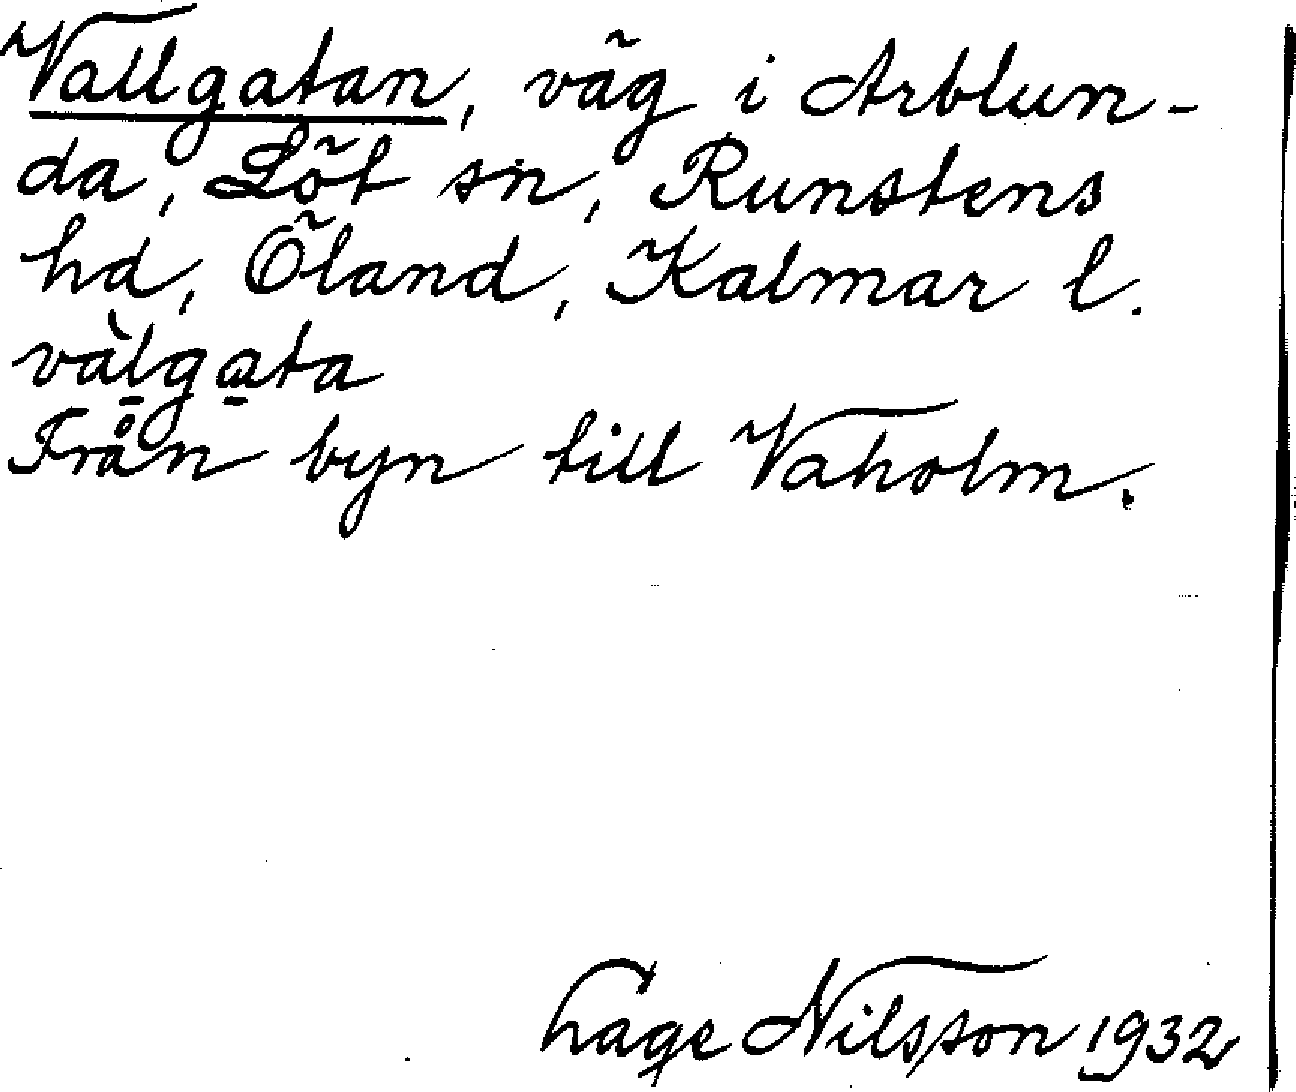 Vallgatan, väg i Arblun-
da, Löt sn, Runstens
hd, Öland, Kalmar l.
vàlgata
Från byn till Vaholm.
Hage Nilsson 1932